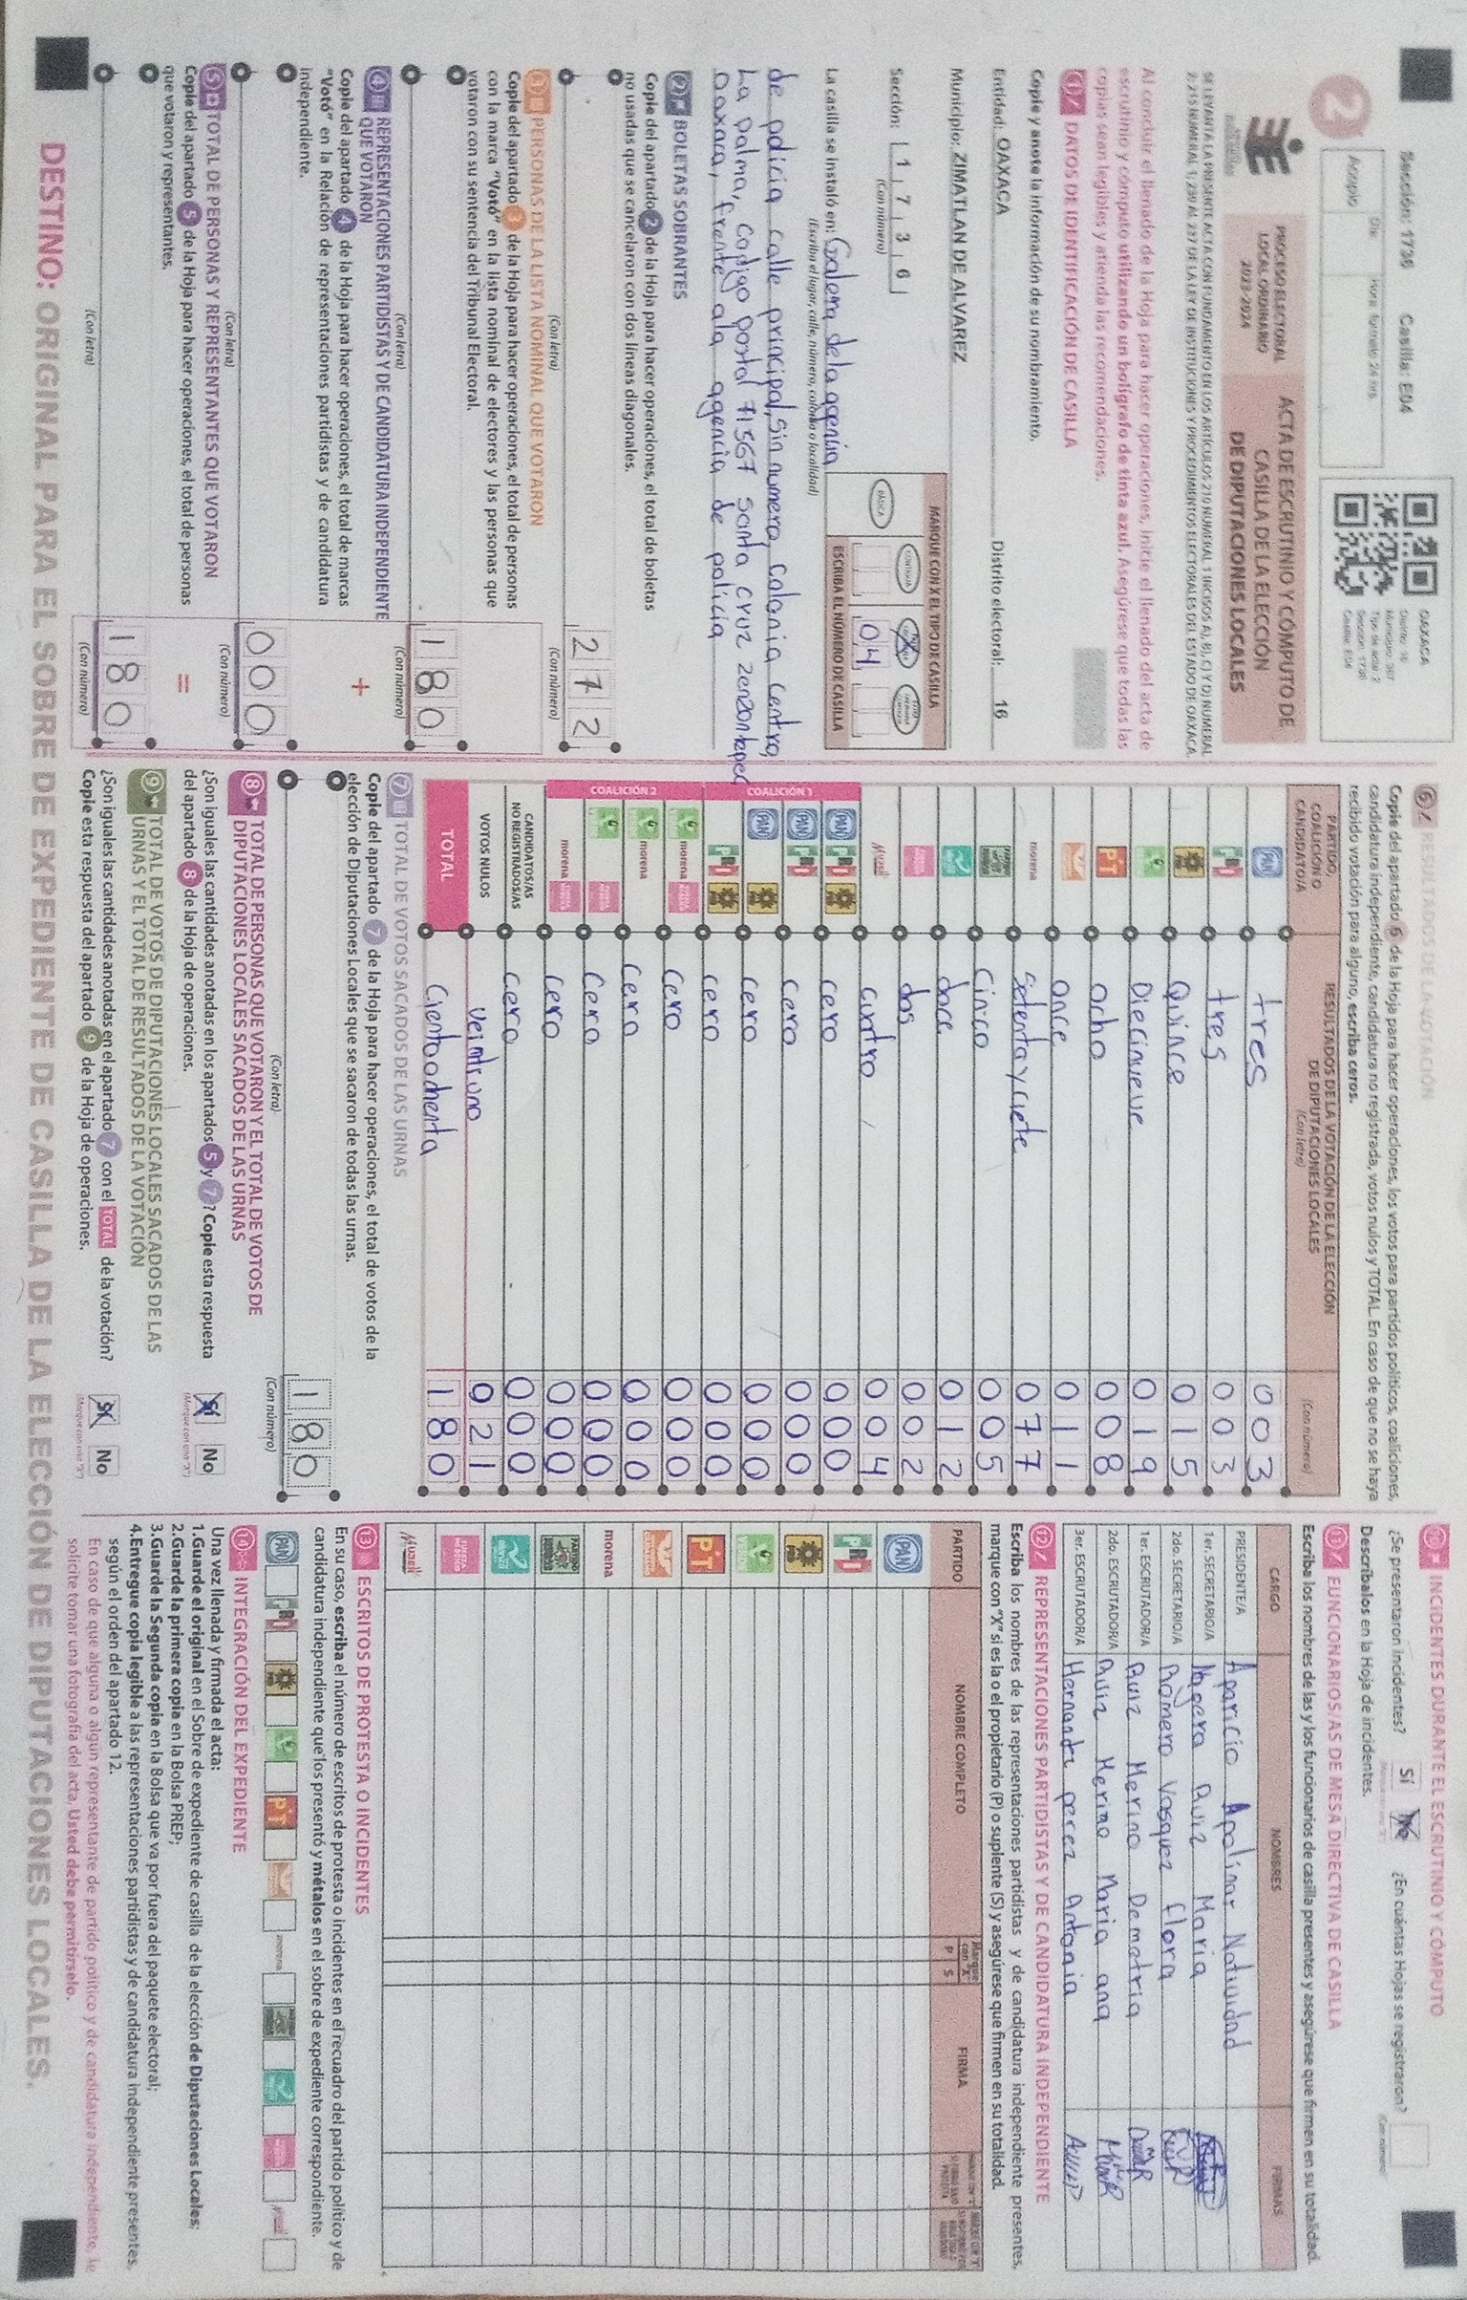 Sección: 1736 Casilla: E04
2
Acopio
Día
Hora: formato 24 hrs
OAXACA
Distrito: 16
Municipio: 567
Tipo de acta: 2
Sección: 1736
Casilla: E04
PROCESO ELECTORAL
LOCAL ORDINARIO
2023-2024
ACTA DE ESCRUTINIO Y CÓMPUTO DE
CASILLA DE LA ELECCIÓN
DE DIPUTACIONES LOCALES
Al concluir el llenado de la Hoja para hacer operaciones, inicie el llenado del acta de
escrutinio y cómputo utilizando un bolígrafo de tinta azul. Asegúrese que todas las
copias sean legibles y atienda las recomendaciones.
1 DATOS DE IDENTIFICACIÓN DE CASILLA
Copie y anote la información de su nombramiento.
Entidad: OAXACA Distrito electoral: 16
Municipio: ZIMATLAN DE ALVAREZ
Sección: 1 7 3 6
(Con número)
MARQUE CON X EL TIPO DE CASILLA
BÁSICA CONTIGUA
04
ESCRIBA EL NÚMERO DE CASILLA
La casilla se instaló en: Galera de la agencia
(Escriba el lugar, calle, número, colonia o localidad)
de policia calle principal, sin numero, colonia centro,
La palma, codigo postal 71567 santa cruz zenzontepec
Oaxaca, frente ala agencia de policia
2 BOLETAS SOBRANTES
Copie del apartado 2 de la Hoja para hacer operaciones, el total de boletas
no usadas que se cancelaron con dos líneas diagonales.
(Con letra)
272
(Con número)
3 PERSONAS DE LA LISTA NOMINAL QUE VOTARON
Copie del apartado 3 de la Hoja para hacer operaciones, el total de personas
con la marca "Votó" en la lista nominal de electores y las personas que
votaron con su sentencia del Tribunal Electoral.
(Con letra)
180
(Con número)
4 REPRESENTACIONES PARTIDISTAS Y DE CANDIDATURA INDEPENDIENTE
QUE VOTARON
Copie del apartado 4 de la Hoja para hacer operaciones, el total de marcas
"Votó" en la Relación de representaciones partidistas y de candidatura
independiente.
+
(Con letra)
000
(Con número)
5 TOTAL DE PERSONAS Y REPRESENTANTES QUE VOTARON
Copie del apartado 5 de la Hoja para hacer operaciones, el total de personas
que votaron y representantes.
=
(Con letra)
180
(Con número)
6 RESULTADOS DE LA VOTACIÓN
Copie del apartado 6 de la Hoja para hacer operaciones, los votos para partidos políticos, coaliciones,
candidatura independiente, candidatura no registrada, votos nulos y TOTAL. En caso de que no se haya
recibido votación para alguno, escriba ceros.
PARTIDO,
COALICIÓN O
CANDIDATO/A
RESULTADOS DE LA VOTACIÓN DE LA ELECCIÓN
DE DIPUTACIONES LOCALES
(Con letra)
(Con número)
PAN tres 003
PRI tres 003
PRD Quince 015
Diecinueve 019
PT ocho 008
once 011
morena Setenta y ciete 077
cinco 005
doce 012
dos 002
cuatro 004
COALICIÓN 1
PAN PRI PRD cero 000
PAN PRI cero 000
PAN PRD cero 000
PRI PRD cero 000
COALICIÓN 2
morena cero 000
morena cero 000
cero 000
morena cero 000
CANDIDATOS/AS
NO REGISTRADOS/AS cero 000
VOTOS NULOS veintiuno 021
TOTAL Cientoochenta 180
7 TOTAL DE VOTOS SACADOS DE LAS URNAS
Copie del apartado 7 de la Hoja para hacer operaciones, el total de votos de la
elección de Diputaciones Locales que se sacaron de todas las urnas.
(Con letra)
180
(Con número)
8 TOTAL DE PERSONAS QUE VOTARON Y EL TOTAL DE VOTOS DE
DIPUTACIONES LOCALES SACADOS DE LAS URNAS
¿Son iguales las cantidades anotadas en los apartados 5 y 7? Copie esta respuesta
del apartado 8 de la Hoja de operaciones.
Sí No
9 TOTAL DE VOTOS DE DIPUTACIONES LOCALES SACADOS DE LAS
URNAS Y EL TOTAL DE RESULTADOS DE LA VOTACIÓN
¿Son iguales las cantidades anotadas en el apartado 7 con el TOTAL de la votación?
Copie esta respuesta del apartado 9 de la Hoja de operaciones.
Sí No
10 INCIDENTES DURANTE EL ESCRUTINIO Y CÓMPUTO
¿Se presentaron incidentes? Sí No ¿En cuántas Hojas se registraron?
Descríbalos en la Hoja de incidentes.
11 FUNCIONARIOS/AS DE MESA DIRECTIVA DE CASILLA
Escriba los nombres de las y los funcionarios de casilla presentes y asegúrese que firmen en su totalidad.
CARGO NOMBRES FIRMAS
PRESIDENTE/A Aparicio Apolinar Natividad
1er. SECRETARIO/A Nogera Ruiz Maria
2do. SECRETARIO/A Romero Vasquez Flora
1er. ESCRUTADOR/A Ruiz Merino Demetria
2do. ESCRUTADOR/A Ruiz Merino Maria ana
3er. ESCRUTADOR/A Hernandez perez Antonia
12 REPRESENTACIONES PARTIDISTAS Y DE CANDIDATURA INDEPENDIENTE
Escriba los nombres de las representaciones partidistas y de candidatura independiente presentes,
marque con "X" si es la o el propietario (P) o suplente (S) y asegúrese que firmen en su totalidad.
PARTIDO NOMBRE COMPLETO P S FIRMA
PAN
PRI
PRD
PT
morena
13 ESCRITOS DE PROTESTA O INCIDENTES
En su caso, escriba el número de escritos de protesta o incidentes en el recuadro del partido político y de
candidatura independiente que los presentó y métalos en el sobre de expediente correspondiente.
PAN PRI PRD PT morena
14 INTEGRACIÓN DEL EXPEDIENTE
Una vez llenada y firmada el acta:
1.Guarde el original en el Sobre de expediente de casilla de la elección de Diputaciones Locales;
2.Guarde la primera copia en la Bolsa PREP;
3.Guarde la Segunda copia en la Bolsa que va por fuera del paquete electoral;
4.Entregue copia legible a las representaciones partidistas y de candidatura independiente presentes,
según el orden del apartado 12.
En caso de que alguna o algún representante de partido político y de candidatura independiente, le
solicite tomar una fotografía del acta, Usted debe permitírselo.
DESTINO: ORIGINAL PARA EL SOBRE DE EXPEDIENTE DE CASILLA DE LA ELECCIÓN DE DIPUTACIONES LOCALES.